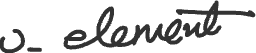 υ- element